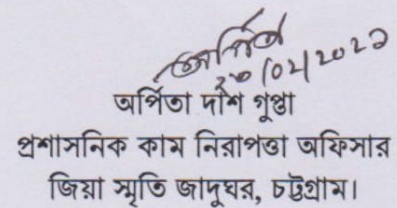 অর্পিতা
২০/০২/২০২১
অর্পিতা দাশ গুপ্তা
প্রশাসনিক কাম নিরাপত্তা অফিসার
জিয়া স্মৃতি জাদুঘর, চট্টগ্রাম।